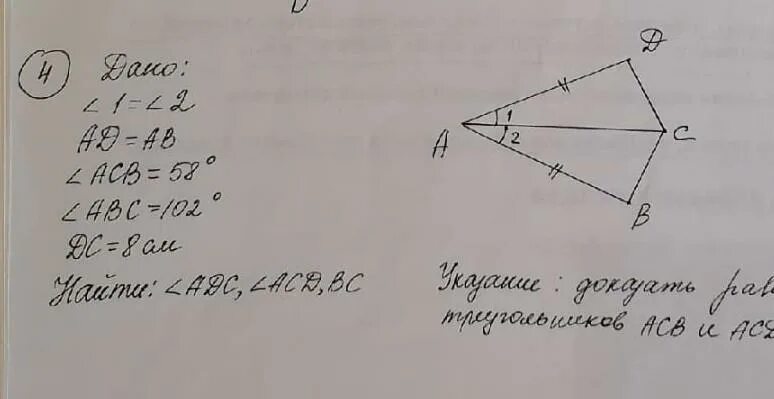 4 Дано:
∠1=∠2
AD=AB
∠ACB=58°
∠ABC=102°
DC=8см
Найти: ∠ADC, ∠ACD, BC
D
1
A
2
C
B
Указание: доказать
треугольников ACB и ACD